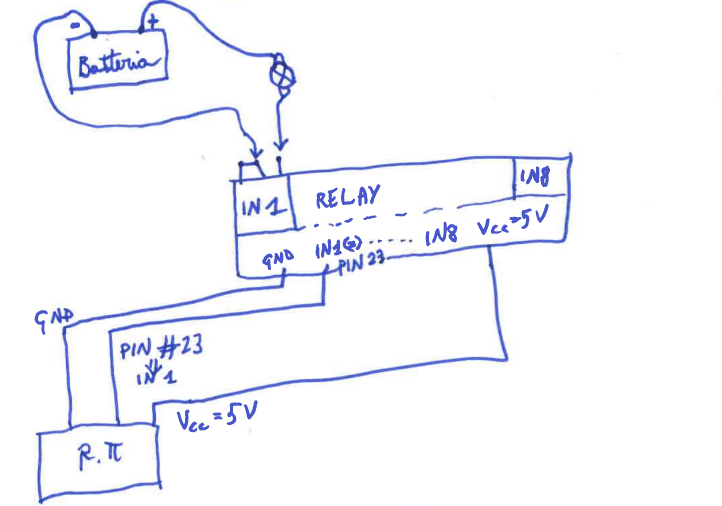 - +
Batteria
IN 1 RELAY IN8
GND IN1(=) ...... IN8 Vcc=5V
PIN 23
GND
PIN #23
⇓
IN 1
Vcc = 5V
R.π